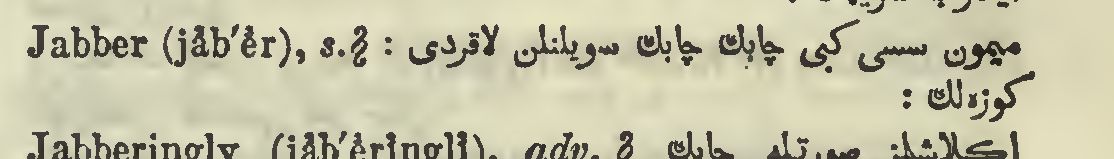 Jabber (jăb′ĕr), s. میمون سسی کبی چابك چابك سویلنلن لاقردی :
كوزه‌لك :
Jabberingly (jăb′ĕringlĭ), adv. چابك